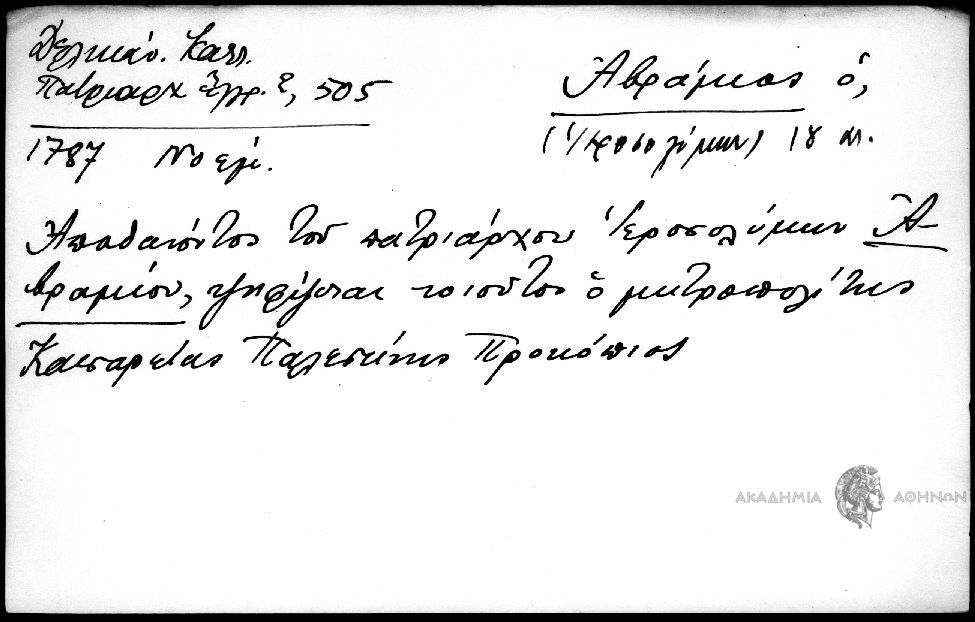 Δελικάν. Καλλ.
Πατριαρχ ἔγγρ. 2, 505
Ἀβράμιος ὁ,
1787 Νοεμ.
(Ἱεροσολύμων) 18 αι.
Ἀποθανόντος τοῦ πατριάρχου Ἱεροσολύμων Ἀ-
βραμίου, ψηφίζεται τοιοῦτος ὁ μητροπολίτης
Καισαρείας Παλεστίνης Προκόπιος
ΑΚΑΔΗΜΙΑ ΑΘΗΝΩΝ